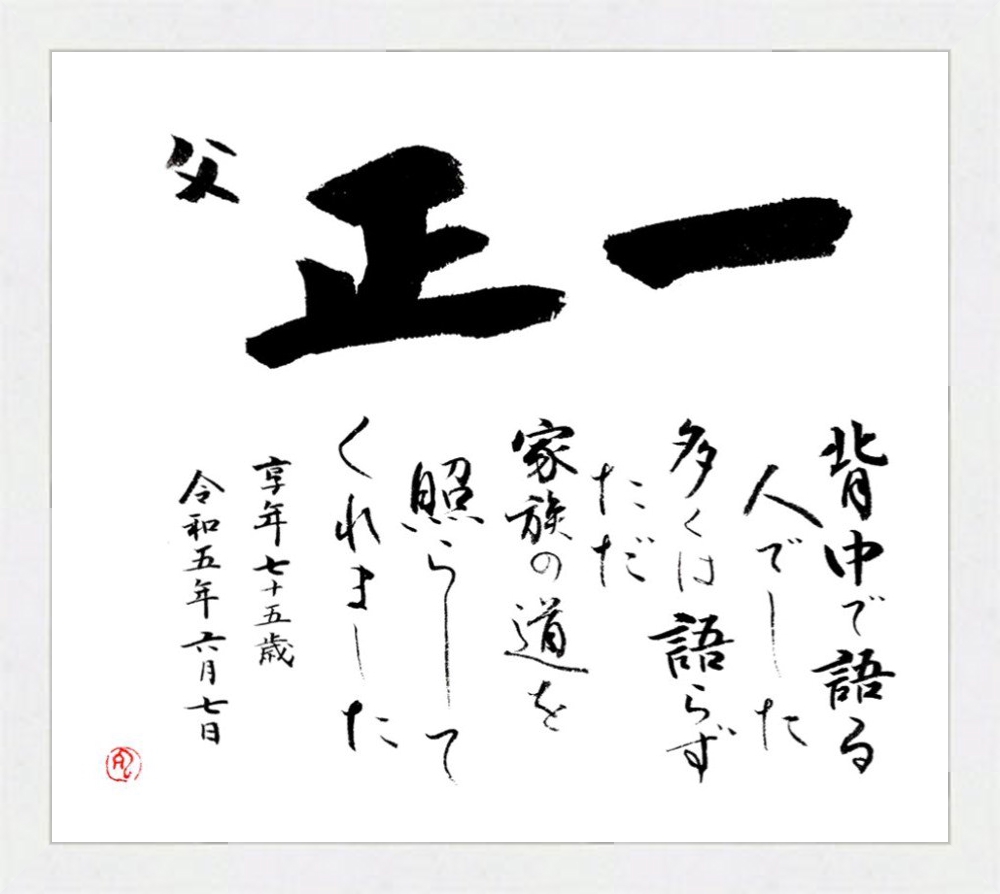 一正
父
背中で語る
人でした
多くは語らず
ただ
家族の道を
照らして
くれました
享年七十五歳
令和五年六月七日